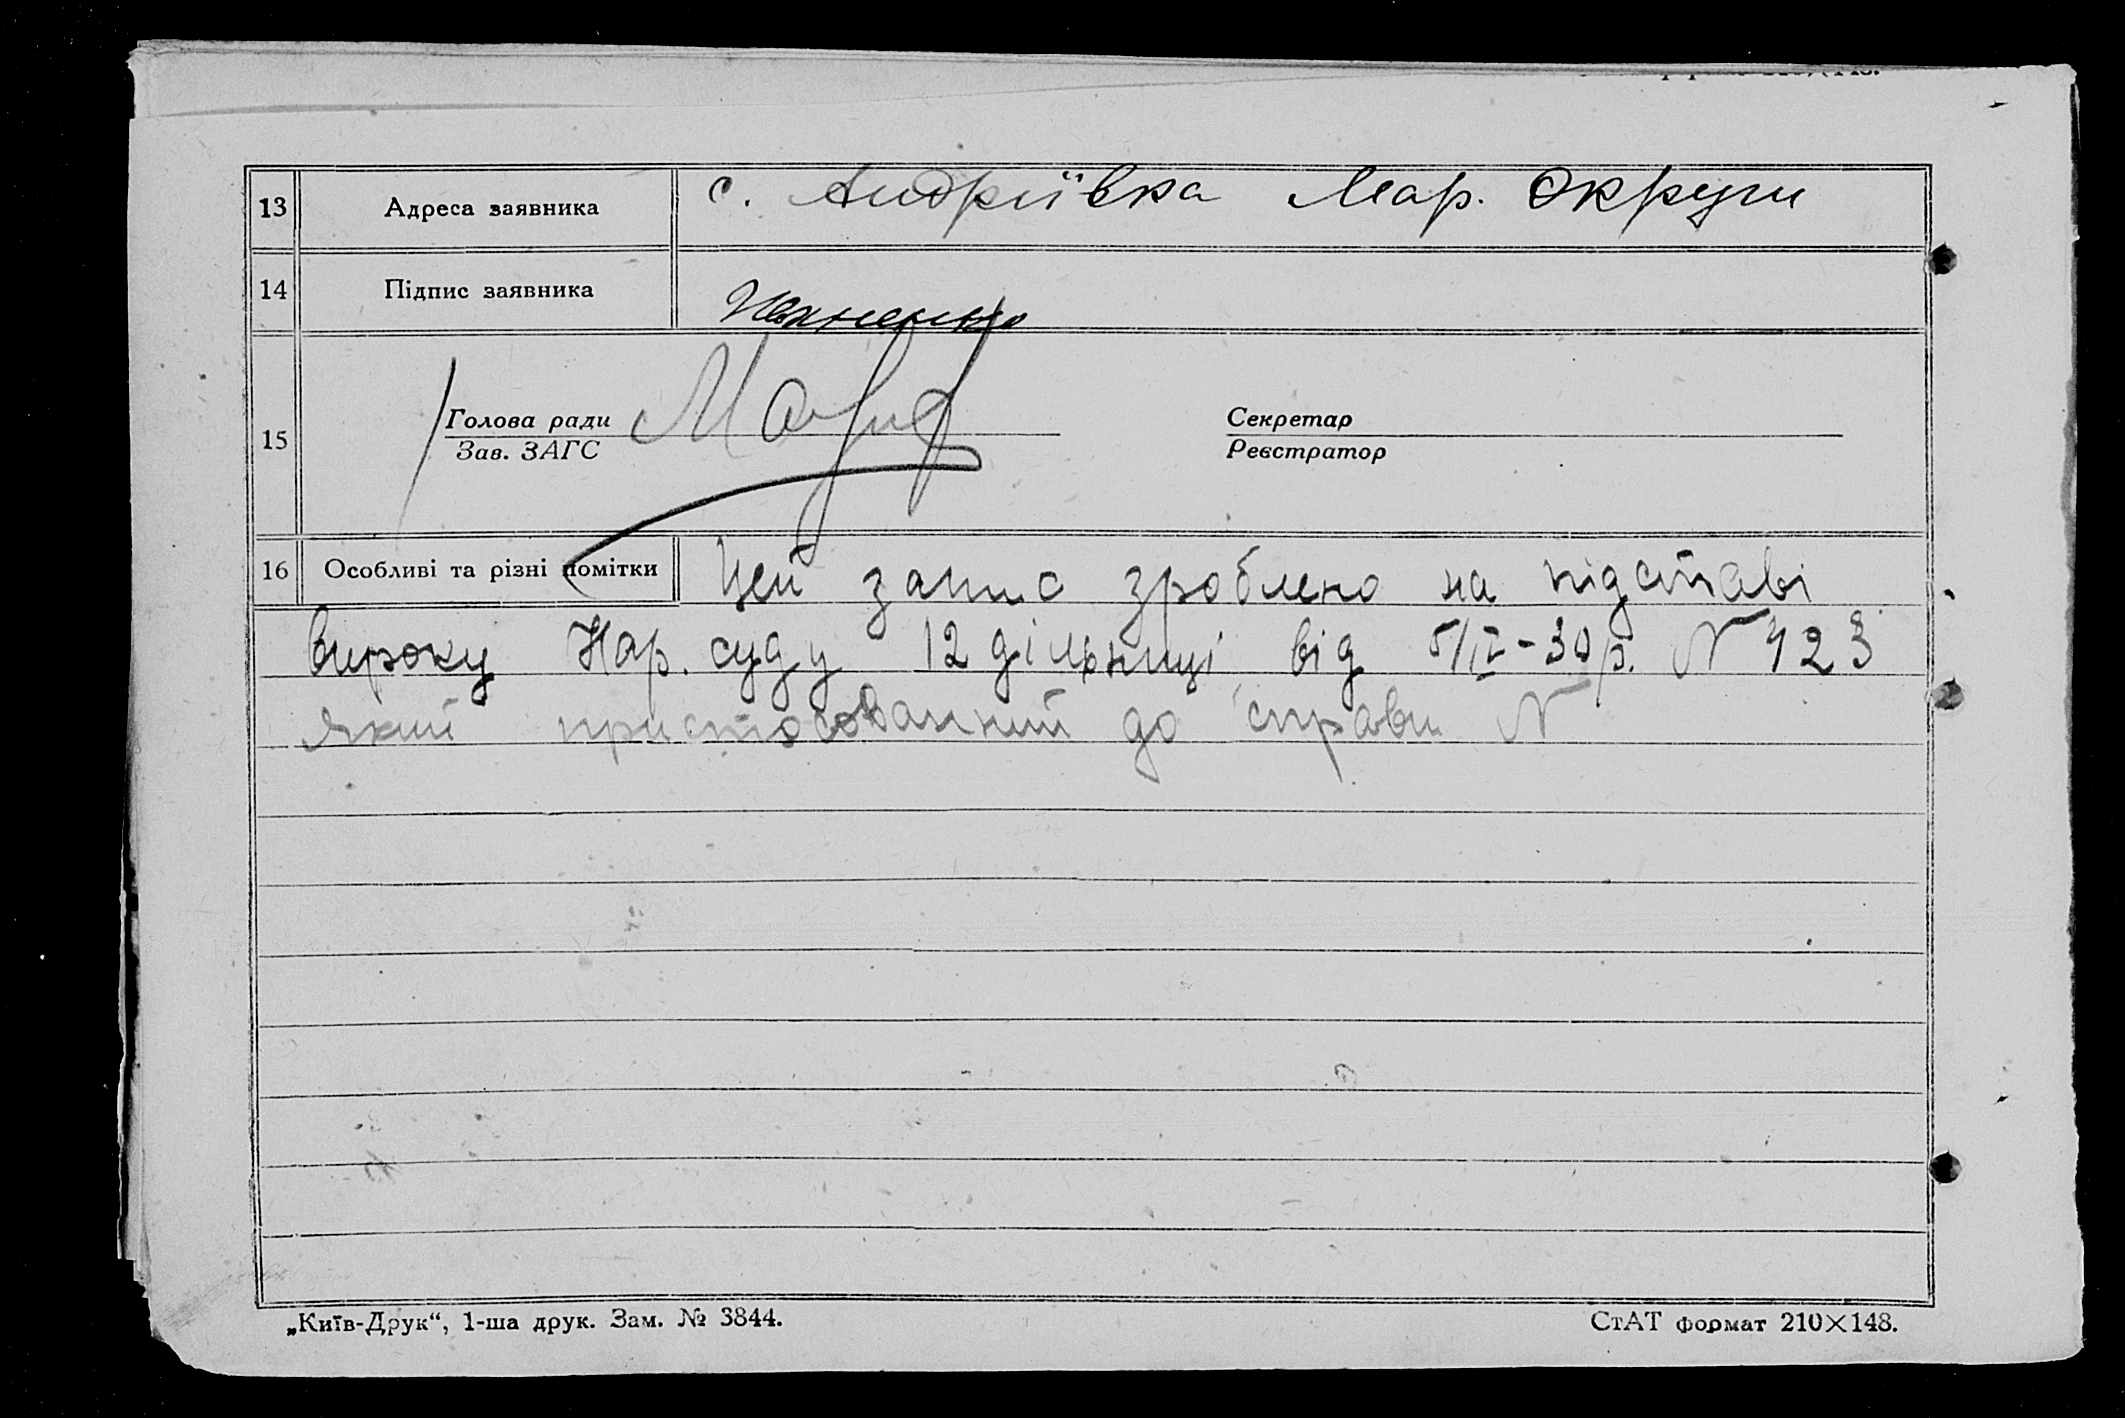 13 Адреса заявника с. Андріївка Мар. Округи
14 Підпис заявника
15 Голова ради Секретар
Зав. ЗАГС Реєстратор
16 Особливі та різні помітки Цей запис зроблено на підставі
вироку Нар. суду 12 дільниці від 5/IV-30 р. N 423
який пристосований до справи N
„Київ-Друк“, 1-ша друк. Зам. № 3844. СтАТ формат 210×148.